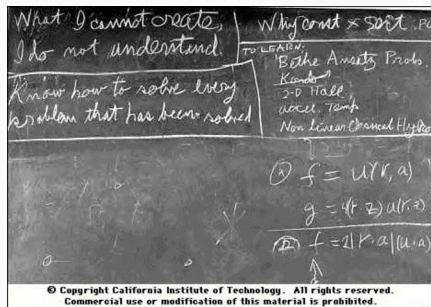 What I cannot create,
I do not understand.
Know how to solve every
problem that has been solved
Why const × sort . PO
TO LEARN:
Bethe Ansatz Prob.
Kondo
2-D Hall
accel. Temp
Non Linear Classical Hydro
f = u(r, a)
g = 4(r·z) u(r, z)
f = 2|r·a| (u·a)
© Copyright California Institute of Technology. All rights reserved.
Commercial use or modification of this material is prohibited.